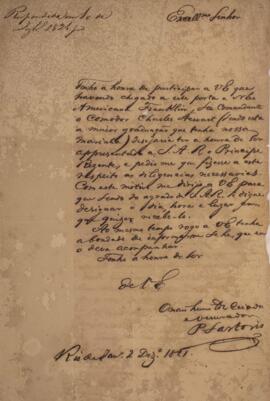 Respondida em 10 de
Dezbro 1821
Exmo Snro Senhor
Tenho a honra de participar a VE que
havendo chegado a este porto a Não
Americana Franklin, seu Comandante
o Comodor Charles Stewart (sendo esta
a maior graduação que tenha nossa
marinha) desejaria ter a honra de ser
appresentado a S. A. R. o Principe
Regente, e pedio me que fizesse a este
respeito as diligencias necessarias.
Com este motivo me dirijo a VE para
que sendo do agrado de S.A.R. se digne
designar o dia, hora e lugar para
que quizer recebelo.
Ao mesmo tempo rogo a VE tenha
a bondade de informarme se he, que eu
o deva acompanhar
Tenho a honra de ser
de VE
O mais humilde Criado
e venerador
P Sartoris
Rio de Janro 2 Dezo 1821